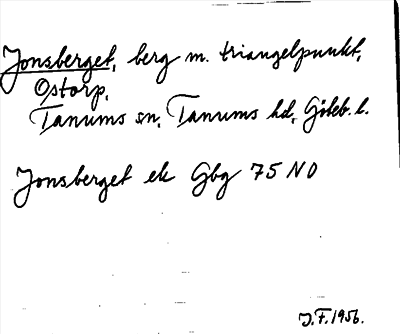 Jonsberget, berg m. triangelpunkt,
Ostorp,
Tanums sn, Tanums hd, Göteb. l.
Jonsberget ek Gbg 75 NO
J.F. 1956.